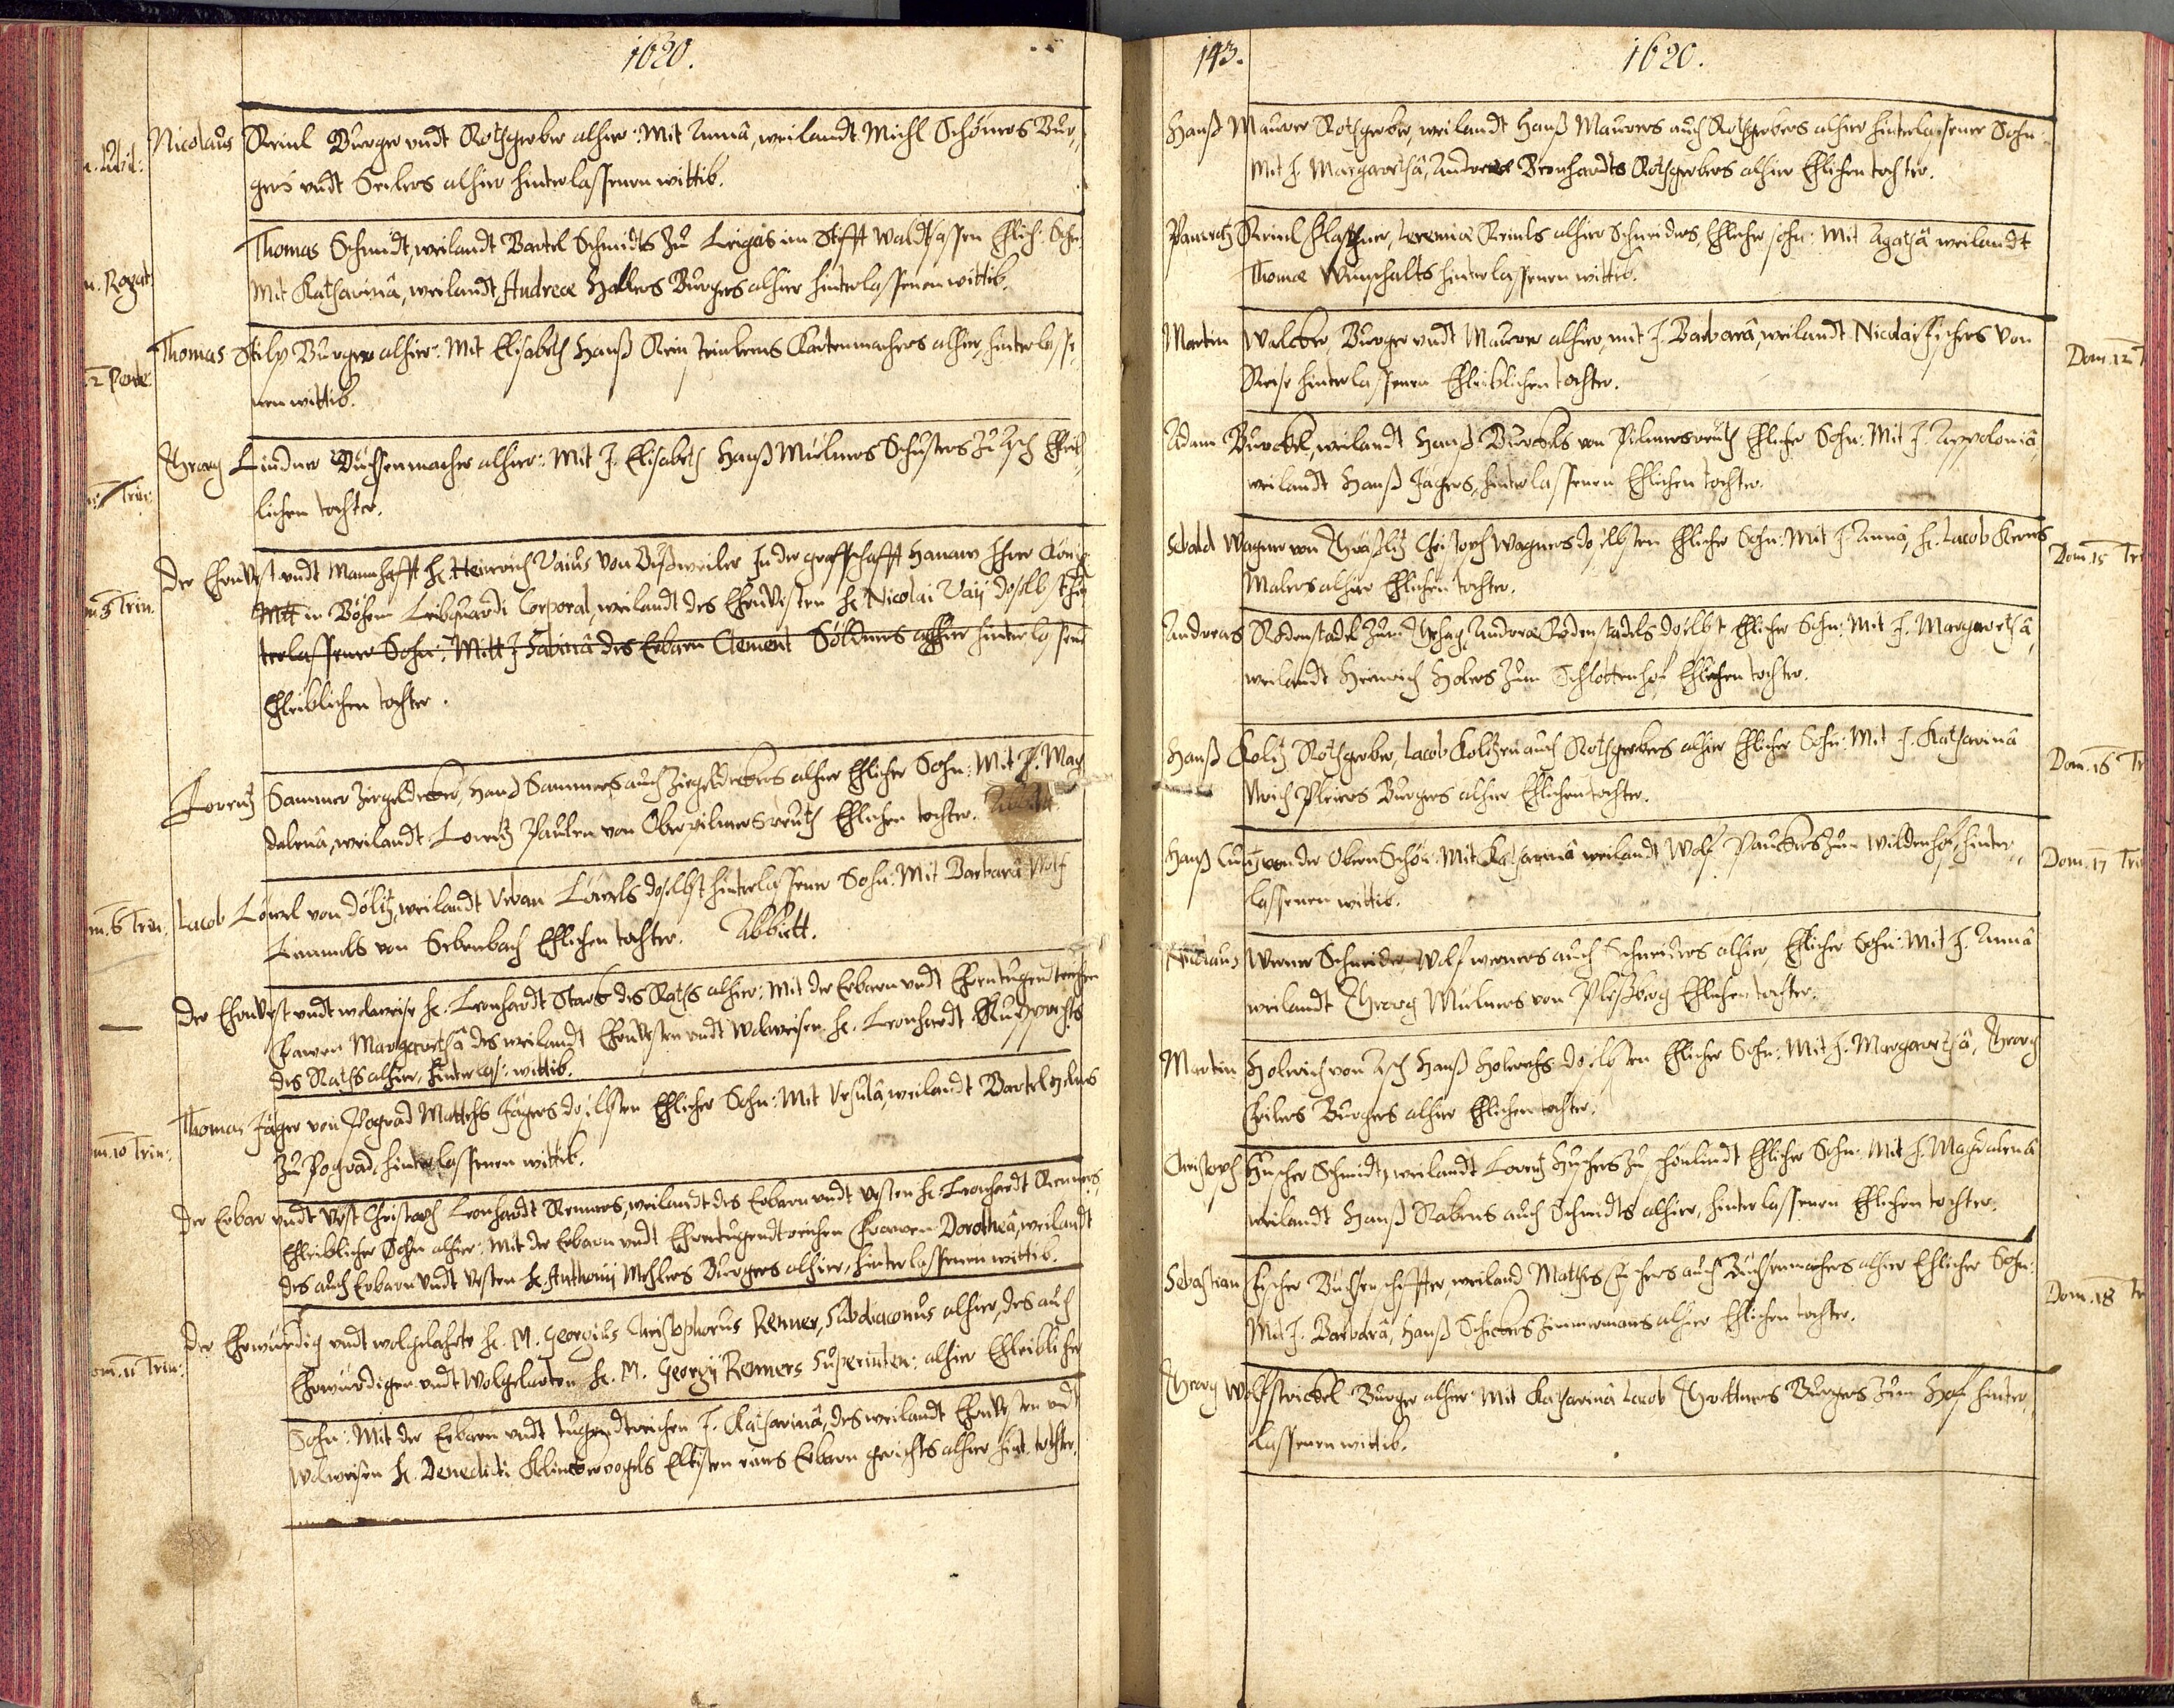 1620.
Jubil:
Nicolaus Reinl Burger undt Rothgerber alhier: Mit Anna, weilandt Michl Schöners Bur-
gers undt Seilers alhier hinterlassenen wittib.
Rogat.
Thomas Schmidt, weilandt Bartel Schmidts zu im Stifft Waldtsassen Ehlich: Sohn
Mit Katharinâ, weilandt Andreæ Hallers Burgers alhier hinterlassenen wittib.
2 Pente
Thomas Burger alhier: Mit Elisabeth Hanß Kartenmachers alhier, hinterlasse-
nen wittib.
Trin:
Georg Lindner Büchsenmacher alhier: Mit J. Elisabeth Hanß Müllners Schusters zu Asch Ehleib-
lichen tochter.
5 Trin.
Der Ehrnvest undt Mannhafft H. Heinrich Vaius von Bußweiler In der graffschafft Hanaw Ihrer König:
Mtt in Böhem Leibguardi Corporal, weilandt des Ehrnvesten H. Nicolai Vaij doselbst hin-
terlassener Sohn: Mitt J Sabinâ des Erbarn Clement Söldners alhier hinterlassene
Ehleiblichen tochter.
Lorentz Sammer Ziegeldecker, Hanß Sammers auch Ziegeldeckers alhier Ehlicher Sohn: Mit J. Mag-
dalenâ, weilandt Lorentz Paulen von Oberpilmersreuth Ehlichen tochter.
6 Trin.
Jacob Löwel von Dölitz, weilandt Urban Löwels doselbst hinterlassener Sohn: Mit Barbarâ Wolf
von Sebenbach Ehlichen tochter. Abbiett.
Der Ehrnvest undt wolweise H. Leonhardt Stark des Raths alhier: Mit der Erbarn undt Ehrentugendtreichen
Frawen Margarethâ des weilandt Ehrnvesten undt Wolweisen H. Leonhardt Rupprechts
des Raths alhier, hinterlas: wittib.
10 Trin:
Thomas Jäger von Pograd Matthes Jägers doselbsten Ehlicher Sohn: Mit Ursulâ, weilandt Bartel
zu Pograd, hinterlassenen wittib.
Der Erbar undt Vest Christoph Leonhardt Renners, weilandt des Erbarn undt Vesten H. Leonhardt Renners,
Ehleiblicher Sohn alhier: Mit der Erbarn undt Ehrntugendtreichen Frawen Dorotheâ, weilandt
des auch Erbarn undt Vesten H. Anthonij Mehlers Burgers alhier, hinterlassenen wittib.
11 Trin:
Der Ehrwürdig undt wolgelahrte H. M. Georgius Christophorus Renner, Subdiaconus alhier, des auch
Ehrwürdigen undt Wolgelarten H. M. Georgij Renners Superinten: alhier Ehleiblicher
Sohn: Mit der Erbarn undt tugendtreichen J. Katharinâ, des weilandt Ehrnvesten undt
Wolweisen H. Benedicti Klinckervogels Eltisten eines Erbarn gerichts alhier hint. tochter.
143.
1620.
Hanß Maurer Rothgerber, weilandt Hanß Maurers auch Rothgerbers alhier hinterlassener Sohn
Mit J. Margarethâ, Andreæ Bernhardts Rothgerbers alhier Ehlichen tochter.
Pancratz Reinl Jeremiæ Reinls alhier Schneiders, Ehlicher sohn: Mit Agathâ weilandt
Thomæ hinterlassenen wittib.
Dom. 12 T
Martin Walcker, Burger undt Maurer alhier, mit J. Barbarâ, weilandt Nicolai Fischers von
hinterlassenen Ehleiblichen tochter.
Adam Burckel, weilandt Hanß Burckels von Pilmersreuth Ehlicher Sohn: Mit J. Appoloniâ,
weilandt Hanß Jägers, hinterlassenen Ehlichen tochter.
Dom. 15 Tri
Sebald Wagner von Christoph Wagners doselbsten Ehlicher Sohn: Mit J. Annâ, H. Jacob
Malers alhier Ehlichen tochter.
Andreas Rodenstadel zum Andreæ Rodenstadels doselbst Ehlicher Sohn: Mit J. Margarethâ,
weilandt Heinrich Holers zum Schlottenhof Ehlichen tochter.
Dom. 16 Tr
Hanß Koltz Rothgerber, Jacob Koltzen auch Rothgerbers alhier Ehlicher Sohn: Mit J. Katharinâ
Ulrich Burgers alhier Ehlichen tochter.
Dom. 17 Tri
Hanß von der Obern Schön: Mit Katharinâ weilandt Wolf Pauckers zum Wildenhof, hinter-
lassenen wittib.
Nicolaus Werner Schneider, Wolf werners auch Schneiders alhier, Ehlicher Sohn: Mit J. Annâ
weilandt Georg Müllners von Pleßberg Ehlichen tochter.
Martin von Asch Hanß doselbsten Ehlicher Sohn: Mit J. Margarethâ, Georg
Burgers alhier Ehlichen tochter.
Christoph Huscher Schmidt, weilandt Lorentz Huschers zu Schönlindt Ehlicher Sohn: Mit J. Magdalenâ
weilandt Hanß Rabens auch Schmidts alhier, hinterlassenen Ehlichen tochter.
Dom. 18 Tr
Sebastian Fischer Büchsenschiffter, weiland Mathes Fischers auch Büchsenmachers alhier Ehlicher Sohn:
Mit J. Barbarâ, Hanß Zimmermans alhier Ehlichen tochter.
Georg Wolfstrickel Burger alhier: Mit Katharinâ Jacob Burgers zum Hof hinter-
lassenen wittib.